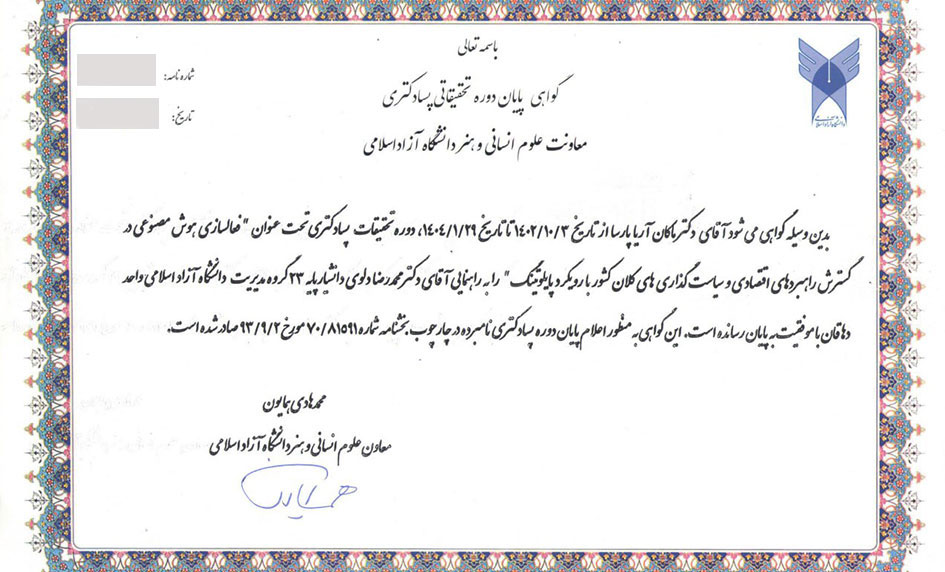 باسمه تعالی
گواهی پایان دوره تحقیقاتی پسادکتری
معاونت علوم انسانی و هنر دانشگاه آزاد اسلامی
شماره نامه:
تاریخ:
دانشگاه آزاد اسلامی
بدین وسیله گواهی می شود آقای دکتر ماکان آریا پارسا از تاریخ ۱۴۰۲/۱۰/۳ تا تاریخ ۱۴۰۴/۱/۲۹، دوره تحقیقات پسادکتری تحت عنوان "فعالسازی هوش مصنوعی در
گسترش راهبردهای اقتصادی و سیاست گذاری های کلان کشور با رویکرد پایلوتینگ" را به راهنمایی آقای دکتر محمدرضا دلوی دانشیار پایه ۲۳ گروه مدیریت دانشگاه آزاد اسلامی واحد
دهاقان با موفقیت به پایان رسانده است. این گواهی به منظور اعلام پایان دوره پسادکتری نامبرده در چارچوب بخشنامه شماره ۷۰/۸۱۵۹۱ مورخ ۹۳/۹/۲ صادر شده است.
محمدهادی همایون
معاون علوم انسانی و هنر دانشگاه آزاد اسلامی